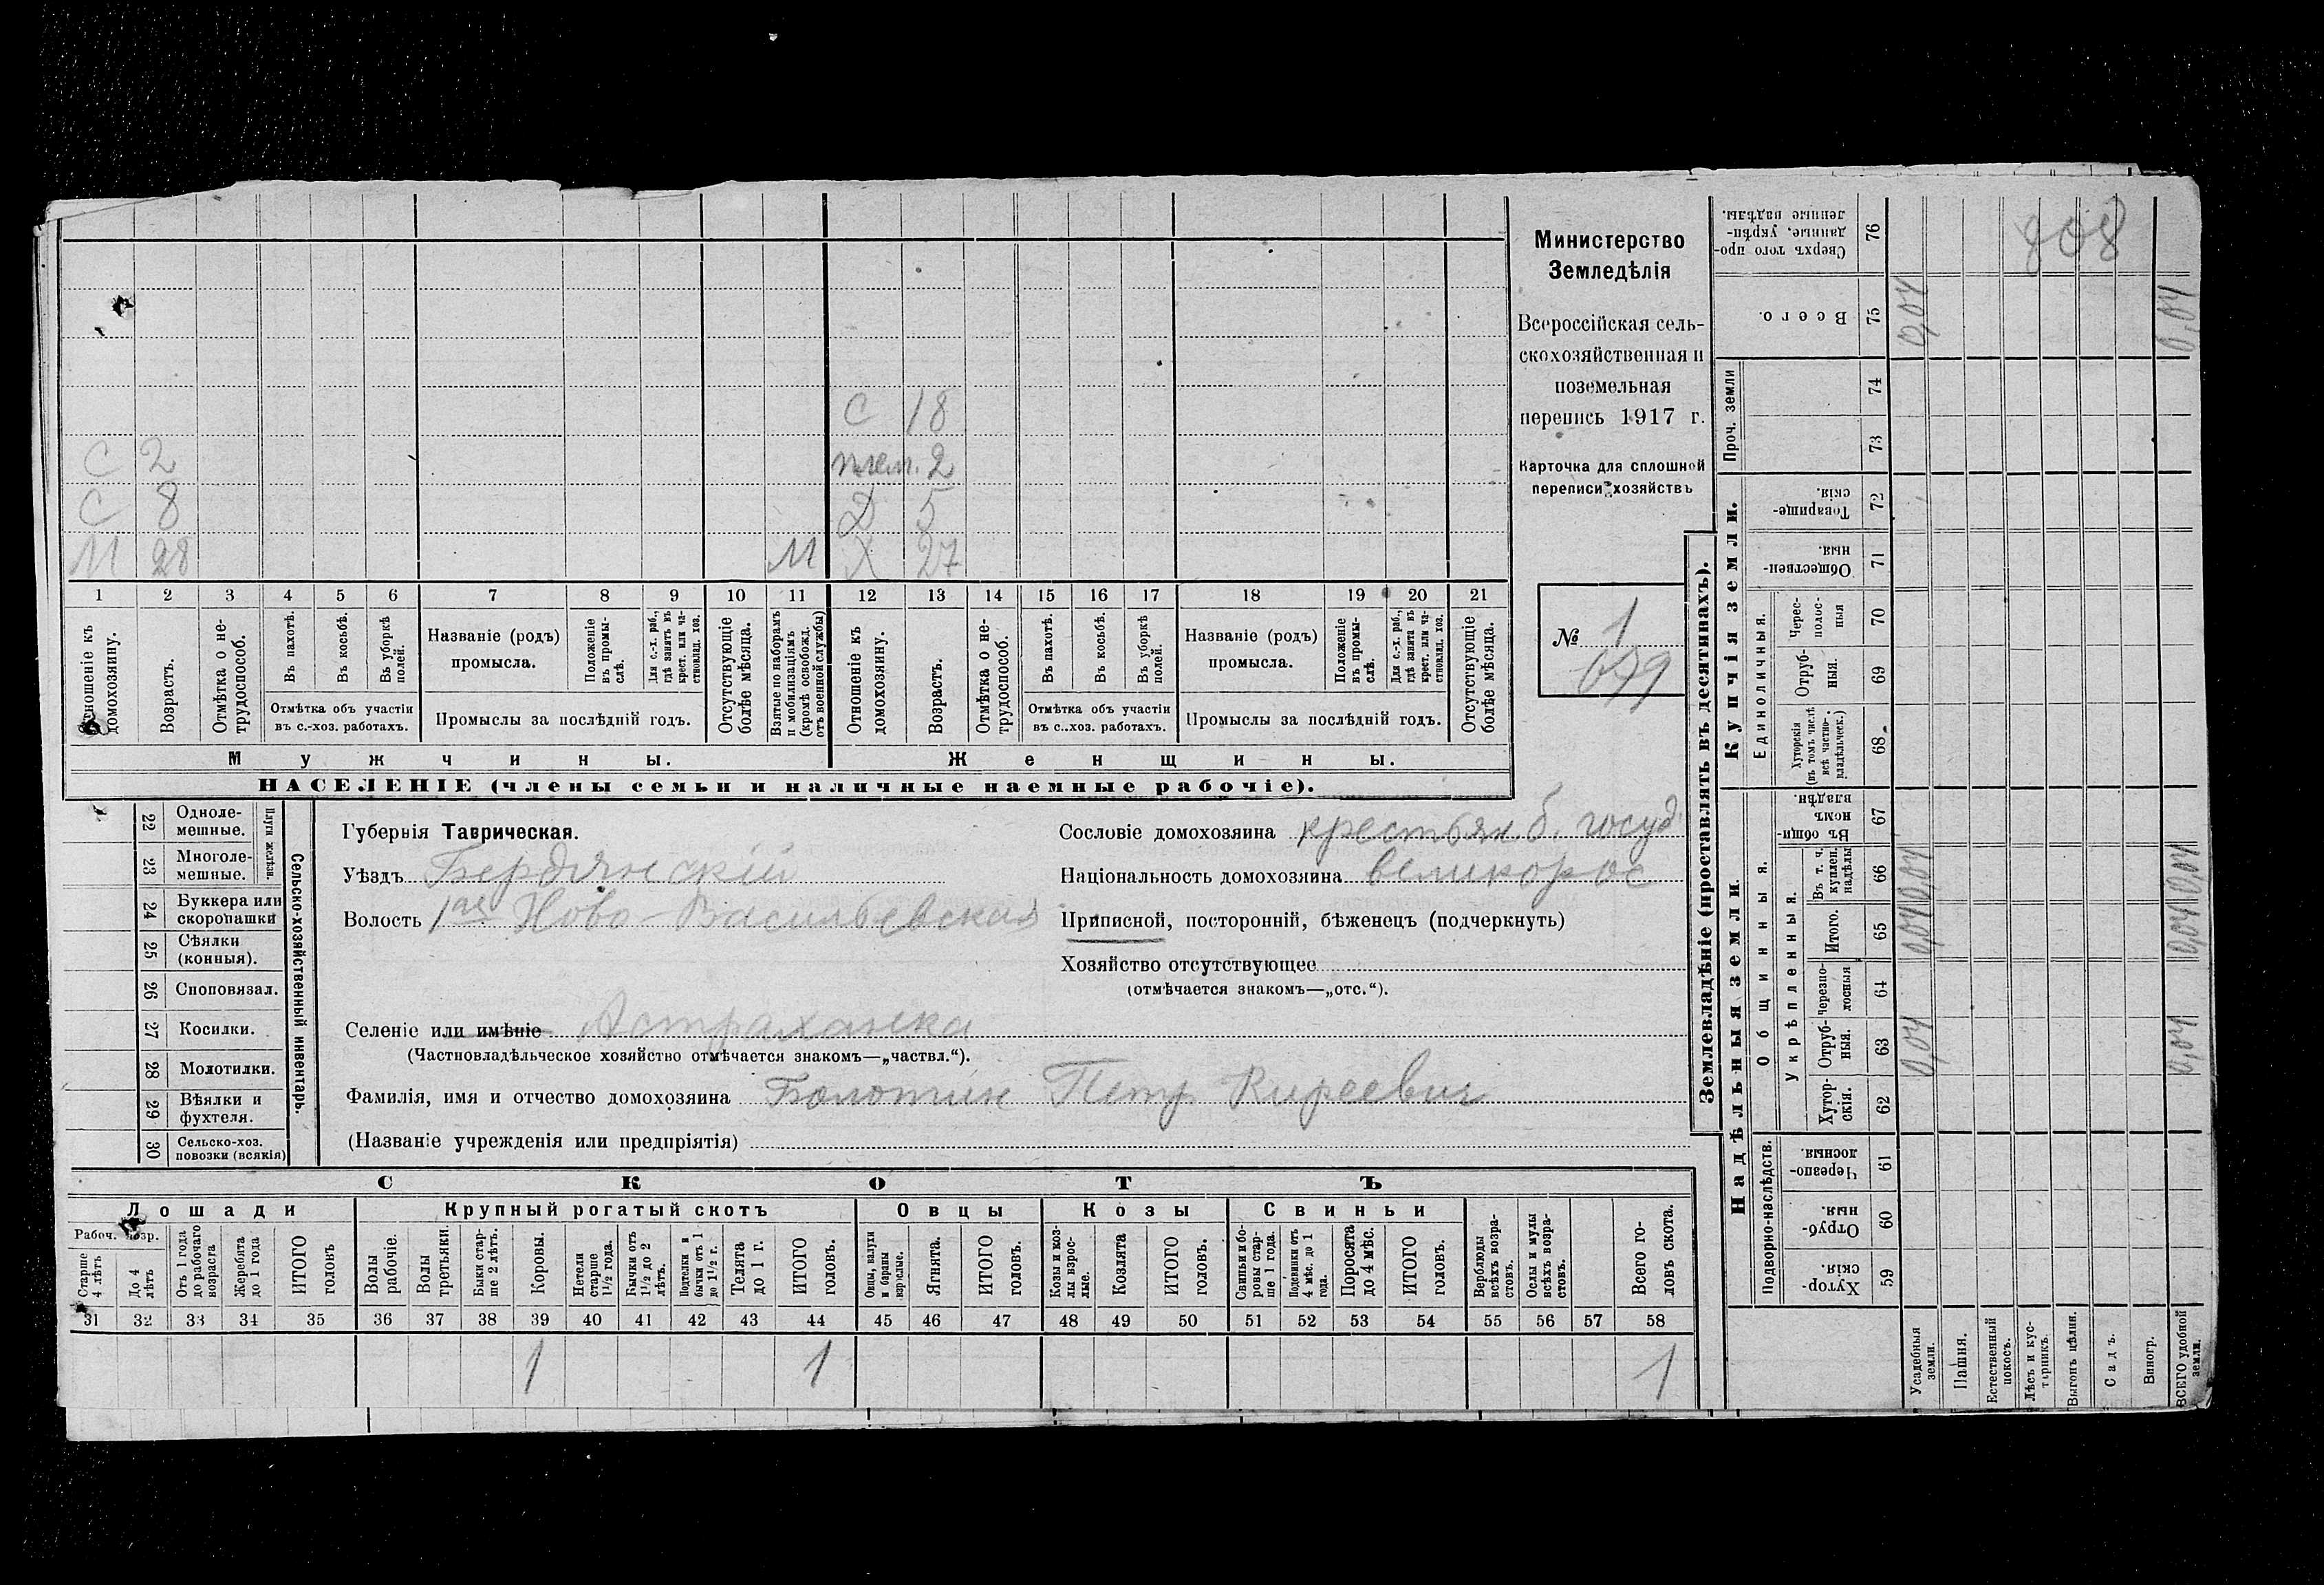 С 18
С 2 плем. 2
С 8 Д 5
М 28 М Х 27
1 2 3 4 5 6 7 8 9 10 11 12 13 14 15 16 17 18 19 20 21
Отношеніе къ домохозяину.
Возрастъ.
Отмѣтка о не-
трудоспособ.
Въ пахотѣ.
Въ косьбѣ.
Въ уборкѣ
полей.
Отмѣтка объ участіи
въ с.-хоз. работахъ.
Названіе (родъ)
промысла.
Положеніе
въ промы-
слѣ.
Для с.-х. раб.,
гдѣ занятъ въ
крест. или ча-
стновлад. хоз.
Промыслы за послѣдній годъ.
Отсутствующіе
болѣе мѣсяца.
Взятые по наборамъ
и мобилизаціямъ
(кромѣ освобожд.
отъ военной службы)
Отношеніе къ
домохозяину.
Возрастъ.
Отмѣтка о не-
трудоспособ.
Въ пахотѣ.
Въ косьбѣ.
Въ уборкѣ
полей.
Отмѣтка объ участіи
въ с..хоз. работахъ.
Названіе (родъ)
промысла.
Положеніе
въ промы-
слѣ.
Для с.-х. раб.,
гдѣ занята въ
крест. или ча-
стновлад. хоз.
Промыслы за послѣдній годъ.
Отсутствующіе
болѣе мѣсяца.
Мужчины. Женщины.
НАСЕЛЕНІЕ (члены семьи и наличные наемные рабочіе).
Министерство
Земледѣлія
Всероссійская сель-
скохозяйственная и
поземельная
перепись 1917 г.
Карточка для сплошной
переписи хозяйствъ
№ 1
699
22 Одноле-
мешные.
23 Многоле-
мешные.
Плуги желѣзн.
24 Буккера или
скоропашки
25 Сѣялки
(конныя).
26 Сноповязал.
27 Косилки.
28 Молотилки.
29 Вѣялки и
фухтеля.
30 Сельско-хоз.
повозки (всякія)
Сельско-хозяйственный инвентарь.
Губернія Таврическая.
Уѣздъ Бердянскій
Волость 1ая Ново-Васильевская
Селеніе или имѣніе Астраханка
(Частновладѣльческое хозяйство отмѣчается знакомъ—„частвл.“).
Фамилія, имя и отчество домохозяина Болотин Петр Киреевич
(Названіе учрежденія или предпріятія)
Сословіе домохозяина крестьян. б. госуд
Національность домохозяина великорос
Приписной, посторонній, бѣженецъ (подчеркнуть)
Хозяйство отсутствующее
(отмѣчается знакомъ—„отс.“).
СКОТЪ
Лошади Крупный рогатый скотъ Овцы Козы Свиньи
Рабоч. возр.
Старше
4 лѣтъ
До 4
лѣтъ
Отъ 1 года
до рабочаго
возраста
Жеребята
до 1 года
ИТОГО
головъ
Волы
рабочіе.
Волы
третьяки.
Быки стар-
ше 2 лѣтъ.
Коровы.
Нетели
старше
1½ года.
Бычки отъ
1½ до 2
лѣтъ.
Подтелки и
бычки отъ 1
до 1½ г.
Телята
до 1 г.
ИТОГО
головъ.
Овцы, валухи
и бараны
взрослые.
Ягнята.
ИТОГО
головъ.
Козы и коз-
лы взрос-
лые.
Козлята
ИТОГО
головъ.
Свиньи и бо-
ровы стар-
ше 1 года.
Подсвинки отъ
4 мѣс. до 1
года.
Поросята
до 4 мѣс.
ИТОГО
головъ.
Верблюды
всѣхъ возра-
стовъ.
Ослы и мулы
всѣхъ возра-
стовъ.
Всего го-
ловъ скота.
31 32 33 34 35 36 37 38 39 40 41 42 43 44 45 46 47 48 49 50 51 52 53 54 55 56 57 58
1 1 1
Землевладѣніе (проставлять въ десятинахъ).
Надѣльныя земли. Купчія земли. Проч. земли
Подворно-наслѣдств.
Общинныя.
Укрѣпленныя.
Единоличныя.
Хутор-
скія. 59
Отруб-
ныя. 60
Черезпо-
лосныя. 61
Хутор-
скія. 62
Отруб-
ныя. 63
Черезпо-
лосныя 64
Итого. 65
Въ т. ч.
куплен.
надѣлы 66
Въ общин-
номъ
владѣн. 67
Хуторскія
(въ томъ числѣ
всѣ частно-
владѣльческ.) 68
Отруб-
ныя. 69
Черес-
полос-
ныя 70
Обществен-
ныя. 71
Товарище-
скія. 72
73
74
Всего. 75
Сверхъ того про-
данные, укрѣп-
ленные надѣлы. 76
Усадебныя
земли.
0,04 0,04 0,04 0,04
Пашня.
Естественный
покосъ.
Лѣсъ и кус-
тарникъ.
Выгонъ цѣлин.
Садъ.
Виногр.
ВСЕГО удобной
земли.
0,04 0,04 0,04 0,04
808